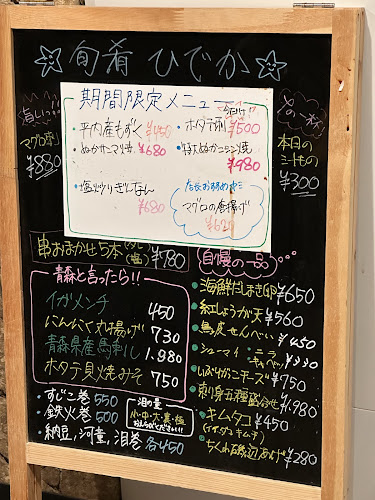 旬肴 ひでか
期間限定メニュー
今だけ!!
・平内産もずく ¥450
・ホタテ刺 ¥500
・ぬかサンマ焼 ¥680
・特大ぬかニシン焼 ¥980
・塩炒りぎんなん ¥680
店長お勧め
マグロの唐揚げ ¥620
旨い!!
マグロ刺 ¥880
本日の
ニートもの
¥300
串おまかせ5本 (タレ)(塩) ¥780
青森と言ったら!!
イガメンチ 450
にんにく丸揚げ 730
青森県産馬刺し 1.980
ホタテ貝焼みそ 750
・すじこ巻 550
・鉄火巻 500
・納豆、河童、泪巻 各450
泪の量…
小・中・大・裏・極
自慢の一品
海鮮だしまき卵 ¥650
紅しょうが天 ¥560
馬皮せんべい ¥450
シューマイ ニラ キャベツ
いぶりがっこチーズ ¥750
刺身五種盛合せ ¥1,980
キムタコ ¥450
ちくわ磯辺あげ ¥280